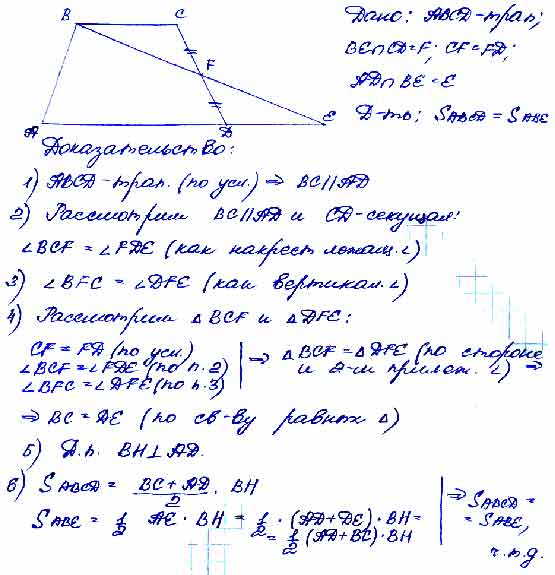 B C
Дано: ABCD-трап;
BE∩CD=F; CF=FD;
F
AD∩BE=E
A D E
Д-ть: SABCD = SABE
Доказательство:
1) ABCD-трап. (по усл.) ⇒ BC∥AD
2) Рассмотрим BC∥AD и CD-секущая:
∠BCF = ∠FDE (как накрест лежащ. ∠)
3) ∠BFC = ∠DFE (как вертикал. ∠)
4) Рассмотрим △BCF и △DFE:
CF = FD (по усл.)
∠BCF = ∠FDE (по п. 2)
∠BFC = ∠DFE (по п. 3)
⇒ △BCF = △DFE (по стороне
и 2-м прилеж. ∠) ⇒
⇒ BC = DE (по св-ву равных △)
5) Д.п. BH⊥AD.
6) SABCD = (BC + AD)/2 · BH
SABE = 1/2 AE · BH = 1/2 · (AD+DE) · BH =
= 1/2 (AD+BC) · BH
⇒ SABCD =
= SABE,
ч.т.д.